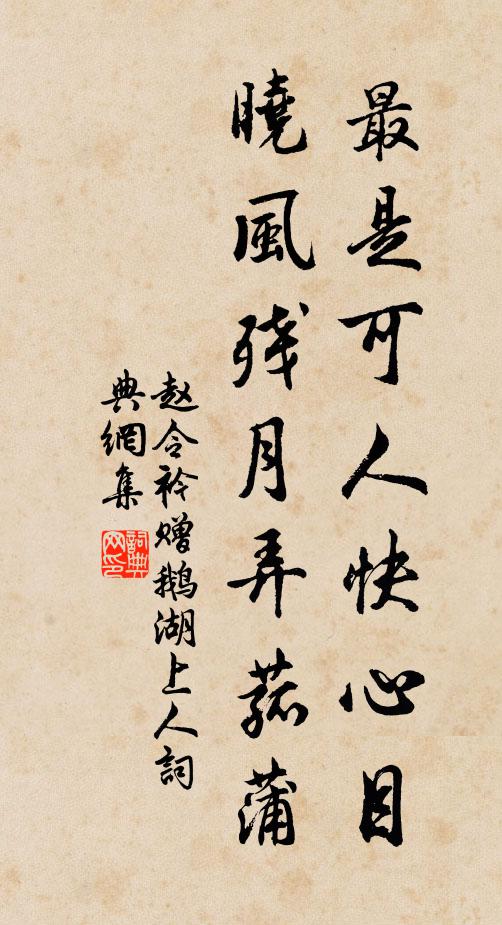 最是可人快心目
曉風残月弄菰蒲
赵令衿赠鹅湖上人詞
典網集
詞典网印